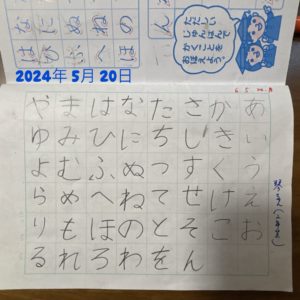 なにぬねの
はひふへほ
ん
かくことを
おぼえよう。
2024年 5月 20日
あいうえお
かきくけこ
さしすせそ
たちつてと
なにぬねの
はひふへほ
まみむめも
やゆよらり
るれろわをん